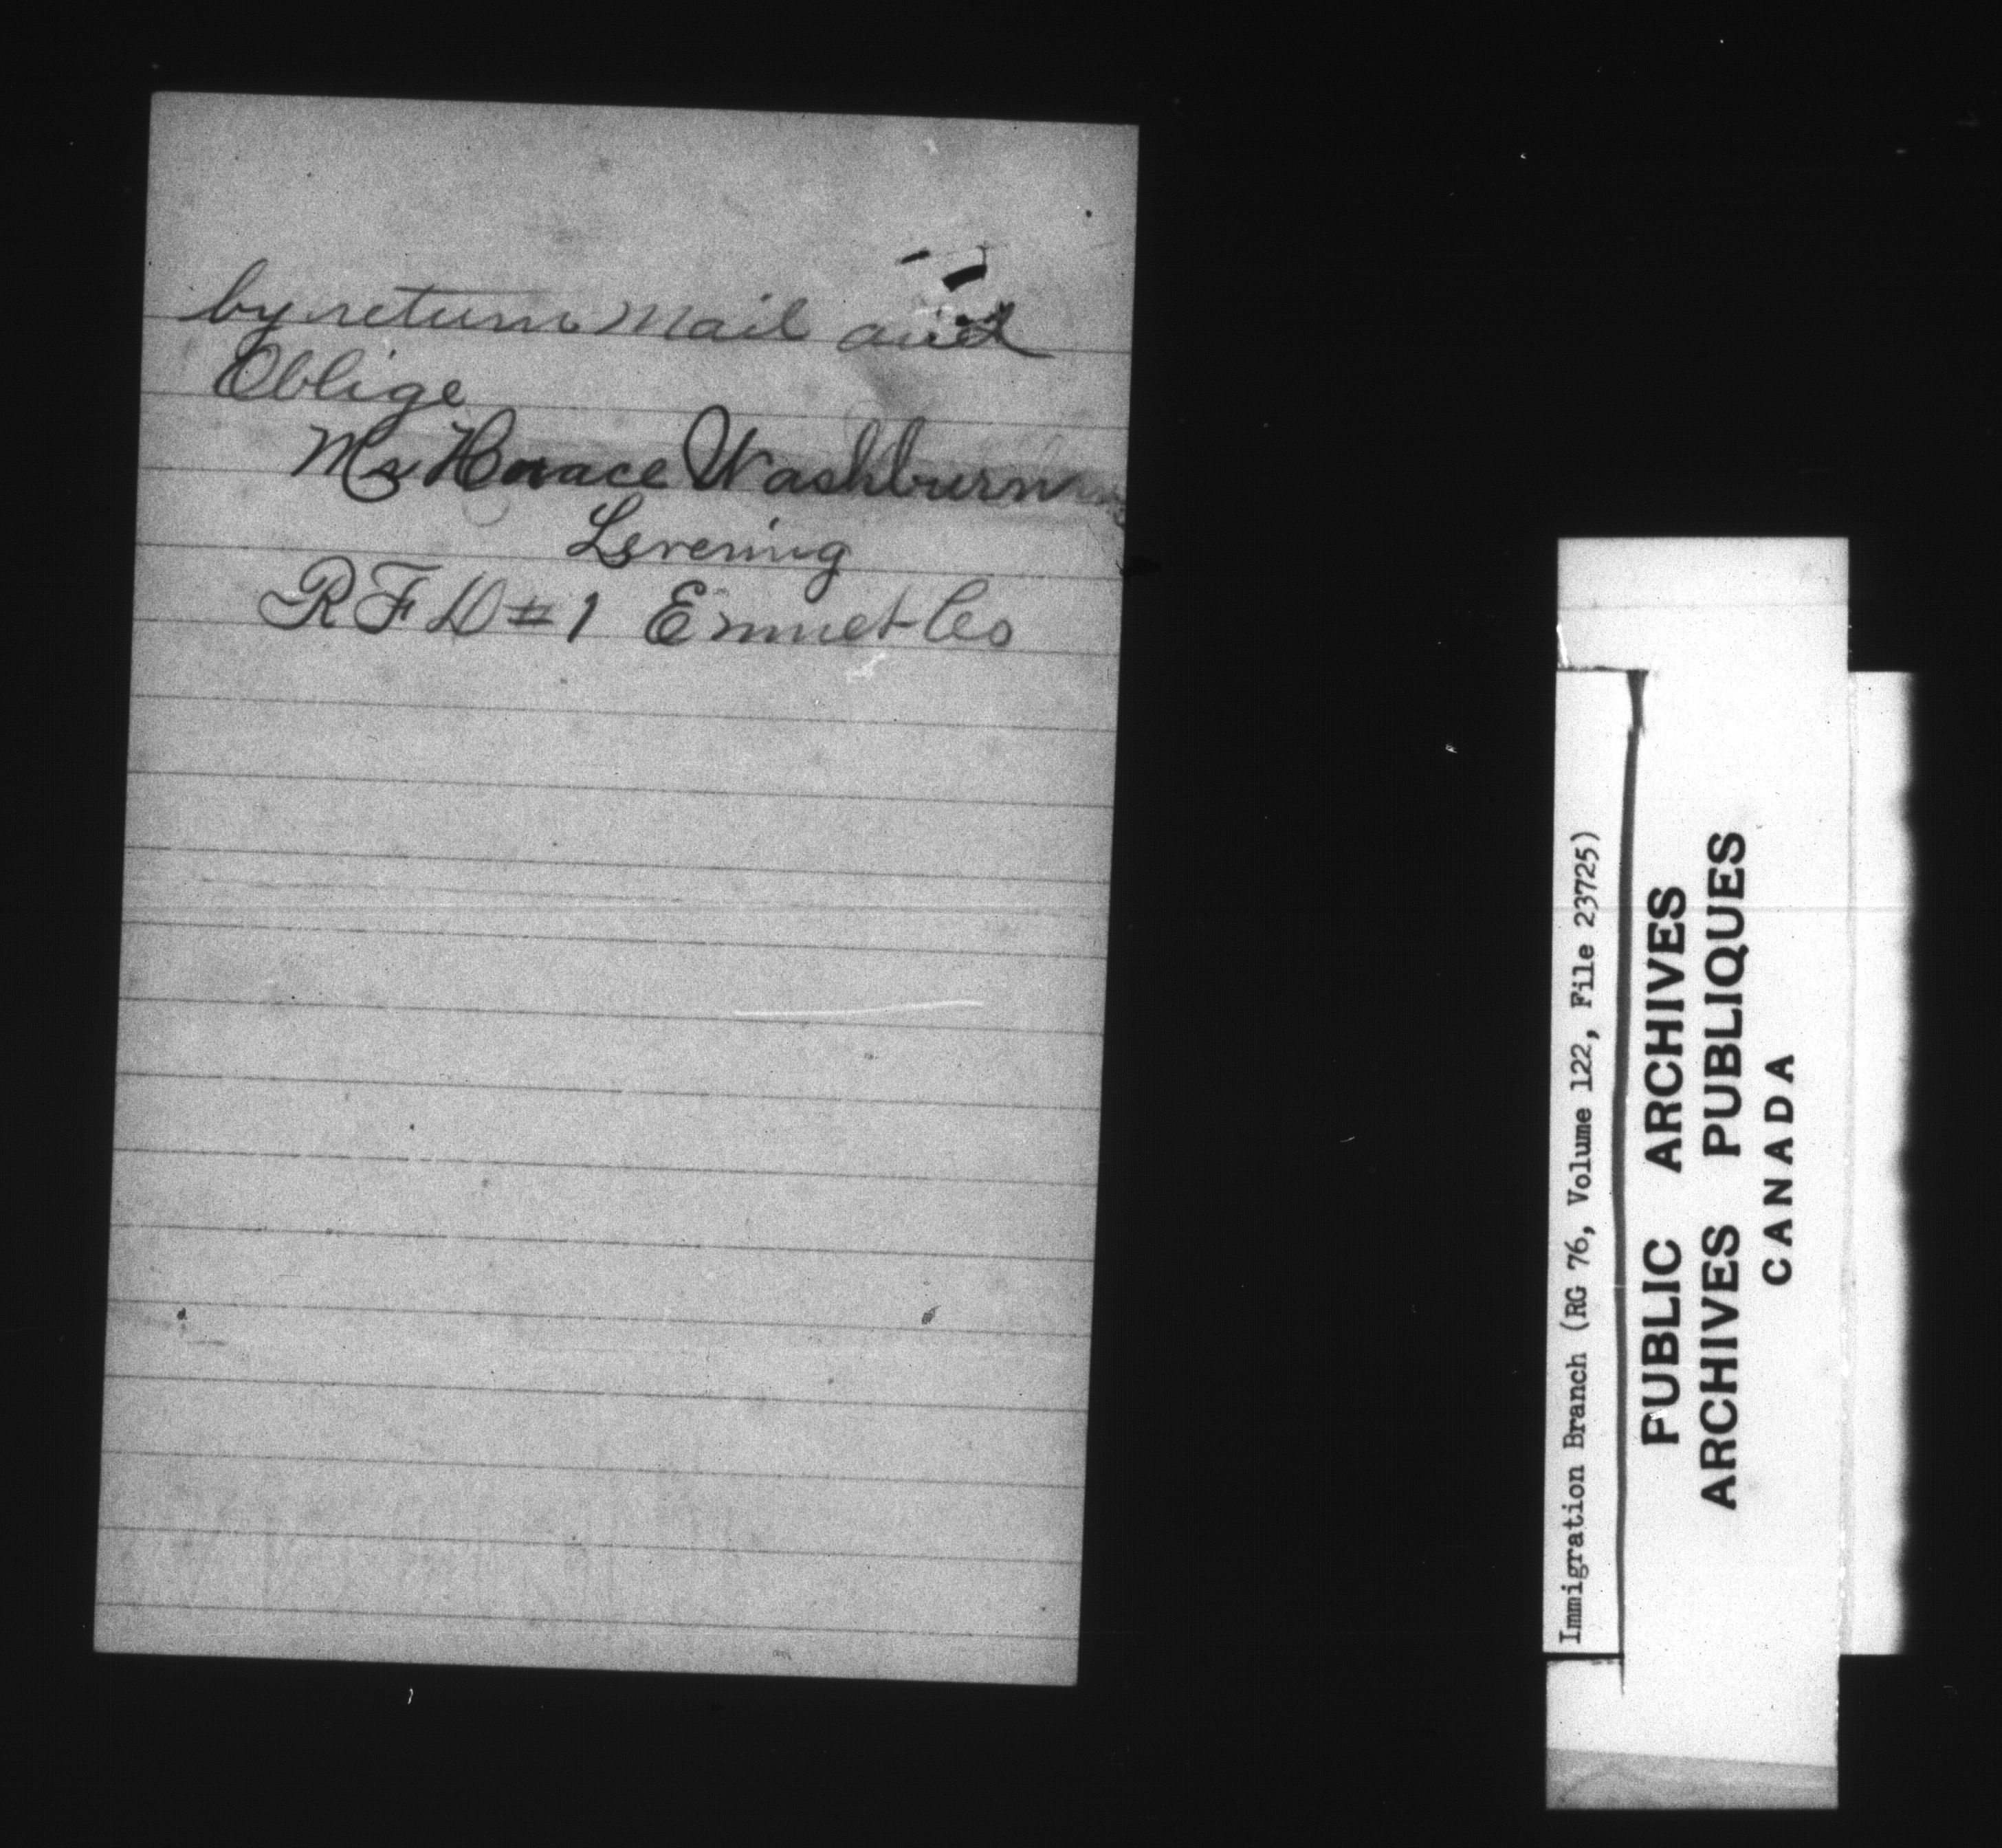 by return Mail and
Oblige
Mr Horace Washburn
Levering
R F D # 1 Emmet Co
Immigration Branch (RG 76, Volume 122, File 23725)
PUBLIC ARCHIVES
ARCHIVES PUBLIQUES
CANADA